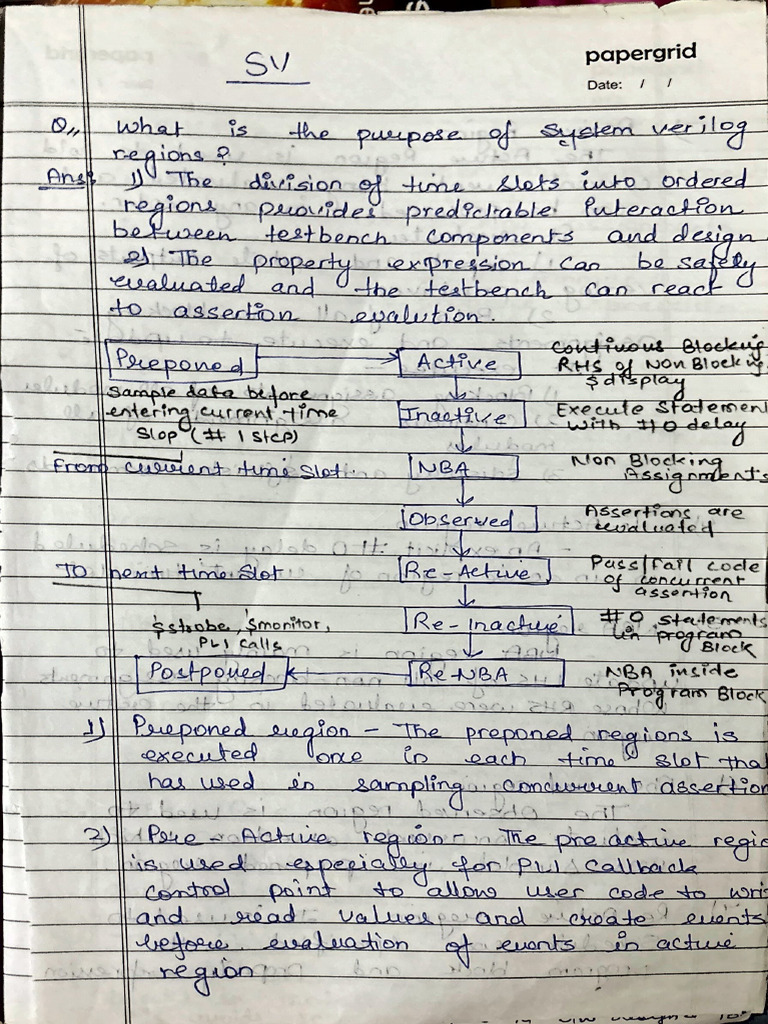 SV
papergrid
Date: / /
Q,, What is the purpose of System verilog
regions?
Ans: 1) The division of time slots into ordered
regions provides predictable Interaction
between testbench components and design
2) The property expression can be safely
evaluated and the testbench can react
to assertion evalution.
Preponed
Active
Continous Blocking
RHS of Non Blocking
$display
Sample data before
entering current time
Slop (# 1 step)
Inactive
Execute Statement
with #0 delay
From current time Slot.
NBA
Non Blocking
Assignments
Observed
Assertions are
evaluated
TO next time Slot
Re-Active
Pass/fail code
of concurrent
assertion
$strobe, $monitor,
PLI calls
Re-Inactive
#0 statements
in program
Block
Postponed
Re-NBA
NBA inside
Program Block
1) Preponed region - The preponed regions is
executed one in each time slot that
has used in sampling concurrent assertion
2) Pre - Active region - The pre active regio
is used especially for PLI Callback
control point to allow user code to wri
and read values and create events
before evaluation of events in active
region